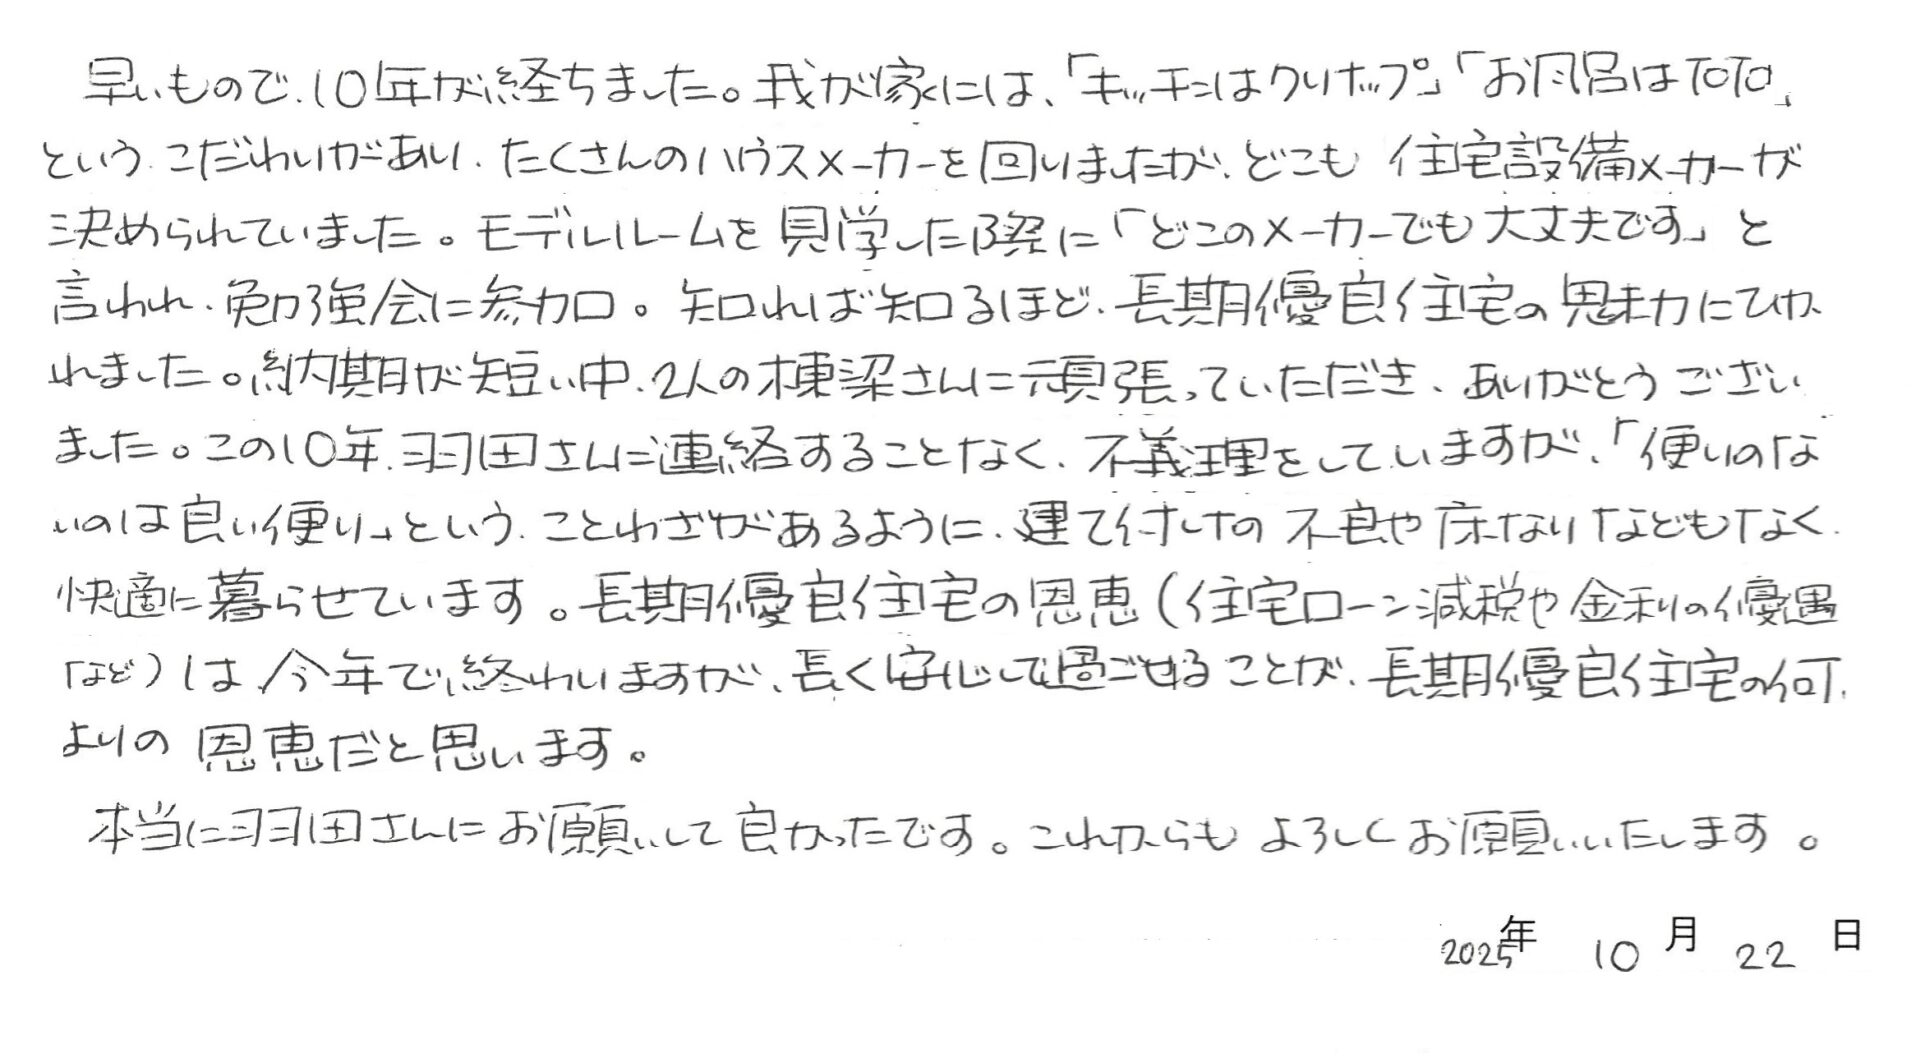 早いもので、10年が経ちました。我が家には、「キッチンはクリナップ」「お風呂はTOTO」
というこだわりがあり、たくさんのハウスメーカーを回りましたが、どこも住宅設備メーカーが
決められていました。モデルルームを見学した際に「どこのメーカーでも大丈夫です」と
言われ、勉強会に参加。知れば知るほど、長期優良住宅の魅力にひか
れました。納期が短い中、2人の棟梁さんに頑張っていただき、ありがとうござい
ました。この10年、羽田さんに連絡することなく、不義理をしていますが、「便りのな
いのは良い便り」という、ことわざがあるように、建て付けの不良や床なりなどもなく、
快適に暮らせています。長期優良住宅の恩恵(住宅ローン減税や金利の優遇
など)は今年で終わりますが、長く安心して過ごせることが、長期優良住宅の何
よりの恩恵だと思います。
本当に羽田さんにお願いして良かったです。これからもよろしくお願いいたします。
2025年 10月 22日